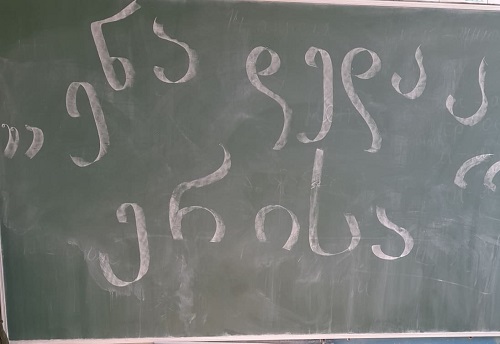 „ენა დედაა
ერისა“